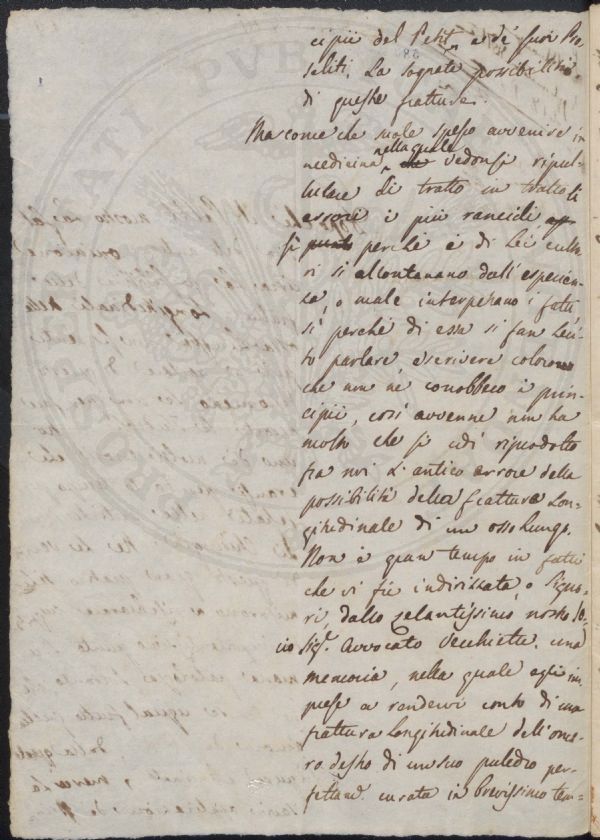 cipii del Petit, e de' suoi Pro=
seliti, la sognata possibilità
di queste fratture.
Ma come che suole spesso avvenire in
medicina, nella quale vedonsi ripul=
lulare di tratto in tratto li
errori i più rancidi
sì perchè i di Lei cultori
si allontanano dall' esperien=
za, o male interpetrano i fatti,
sì perchè di essa si fan leci=
to parlare, e scrivere coloro
che non ne conobbero i prin=
cipii, così avvenne non ha
molto che si vidi riprodotto
fra noi L' antico errore della
possibilità della frattura Lon=
gitudinale di un osso lungo.
Non è gran tempo in fatti
che vi fù indirizzata, o Signo=
ri, dallo zelantissimo nostro So=
cio Sig.r Avvocato Vecchietti una
memoria, nella quale egli im=
prese a rendervi conto di una
frattura Longitudinale dell' ome=
ro destro di un suo puledro per=
fettam.e curata in brevissimo tem=